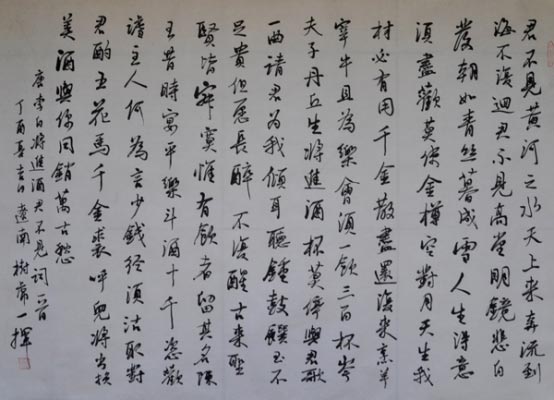 君不见黄河之水天上来奔流到
海不复迴君不見高堂明鏡悲白
发朝如青丝暮成雪人生得意
須盡歡莫使金樽空對月天生我
材必有用千金散盡還復来烹羊
宰牛且為樂會須一飲三百杯岑
夫子丹丘生將進酒杯莫停與君歌
一曲請君为我傾耳聽鐘鼓饌玉不
足貴但愿長醉不復醒古来聖
賢皆寂寞惟有飲者留其名陳
王昔時宴平樂斗酒十千恣歡
謔主人何為言少錢径須沽取對
君酌五花馬千金裘呼兒將出换
美酒與你同銷萬古愁
唐李白將進酒君不見詞一首
丁酉 遼南樹席一揮